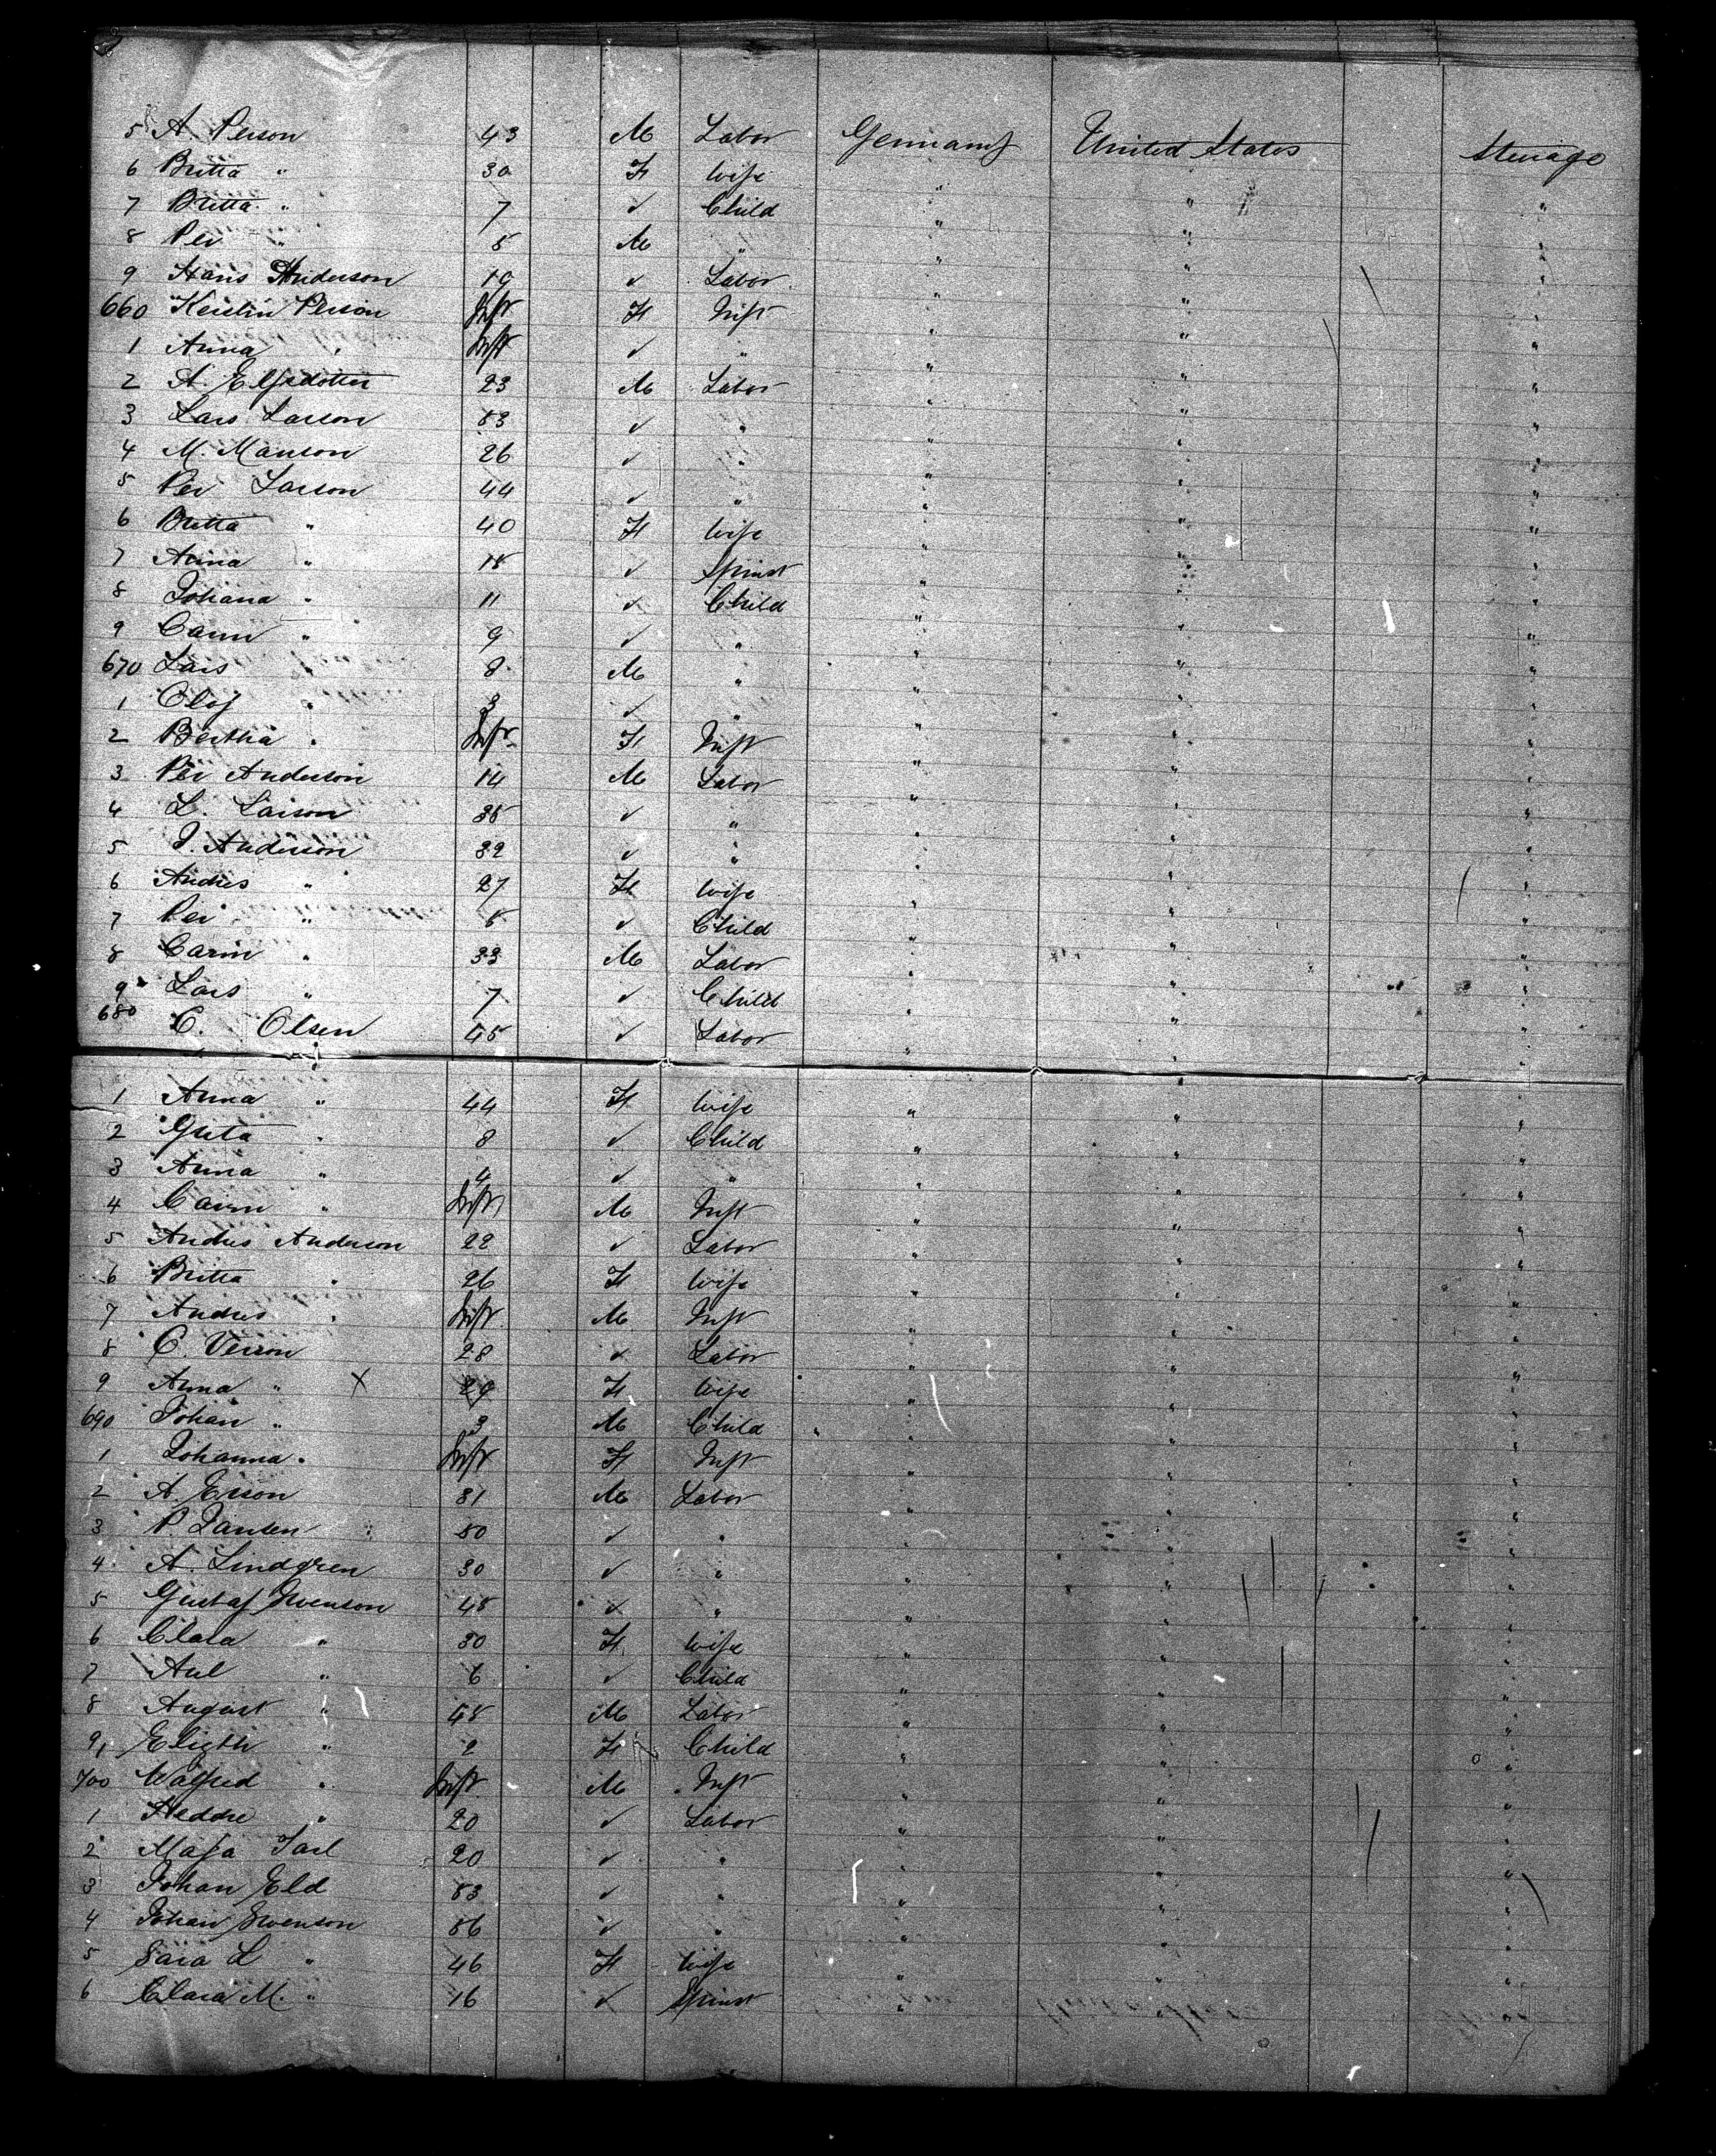 5 A Person 43 M Labor Germany United States Steerage
6 Britta " 30 F wife " " "
7 Britta " 7 ✓ Child " " "
8 Per " 5 M " " " "
9 Hans Anderson 19 ✓ Labor " " "
660 Kerstin Person Inft F Inft " " "
1 Anna " Inft ✓ " " " "
2 A. Elfsdotter 23 M Labor " " "
3 Lars Larson 53 ✓ " " " "
4 M. Manson 26 ✓ " " " "
5 Per Larson 44 ✓ " " " "
6 Britta " 40 F wife " " "
7 Anna " 15 ✓ Spinst " " "
8 Johana " 11 ✓ Child " " "
9 Carin " 9 ✓ " " " "
670 Lars " 8 M " " " "
1 Olof " 3 ✓ " " " "
2 Bertha " Inft F Inft " " "
3 Per Anderson 14 M Labor " " "
4 L. Larson 35 ✓ " " " "
5 J. Anderson 32 ✓ " " " "
6 Andres " 27 F wife " " "
7 Per " 5 ✓ Child " " "
8 Carin " 33 M Labor " " "
9 Lars " 7 ✓ Child " " "
680 C. Olsen 45 ✓ Labor " " "
1 Anna " 44 F wife " " "
2 Greta " 8 ✓ Child " " "
3 Anna " 4 ✓ " " " "
4 Carin " Inft M Inft " " "
5 Andres Anderson 22 ✓ Labor " " "
6 Britta " 26 F wife " " "
7 Andres " Inft M Inft " " "
8 C. 28 ✓ Labor " " "
9 Anna " X 29 F wife " " "
690 Johan " 3 M Child " " "
1 Johanna " Inft F Inft " " "
2 A. Erson 31 M Labor " " "
3 P. Jansen 50 ✓ " " " "
4 A. Lindgren 30 ✓ " " " "
5 Gustaf Swenson 45 ✓ " " " "
6 Clara " 30 F wife " " "
7 " 6 ✓ Child " " "
8 August " 45 M Labor " " "
9 " 2 F Child " " "
700 Walfred " Inft M Inft " " "
1 " 20 ✓ Labor " " "
2 20 ✓ " " " "
3 Johan Eld 53 ✓ " " " "
4 Johan Swenson 56 ✓ " " " "
5 Sara L " 46 F wife " " "
6 Clara M. " 16 ✓ Spinst "